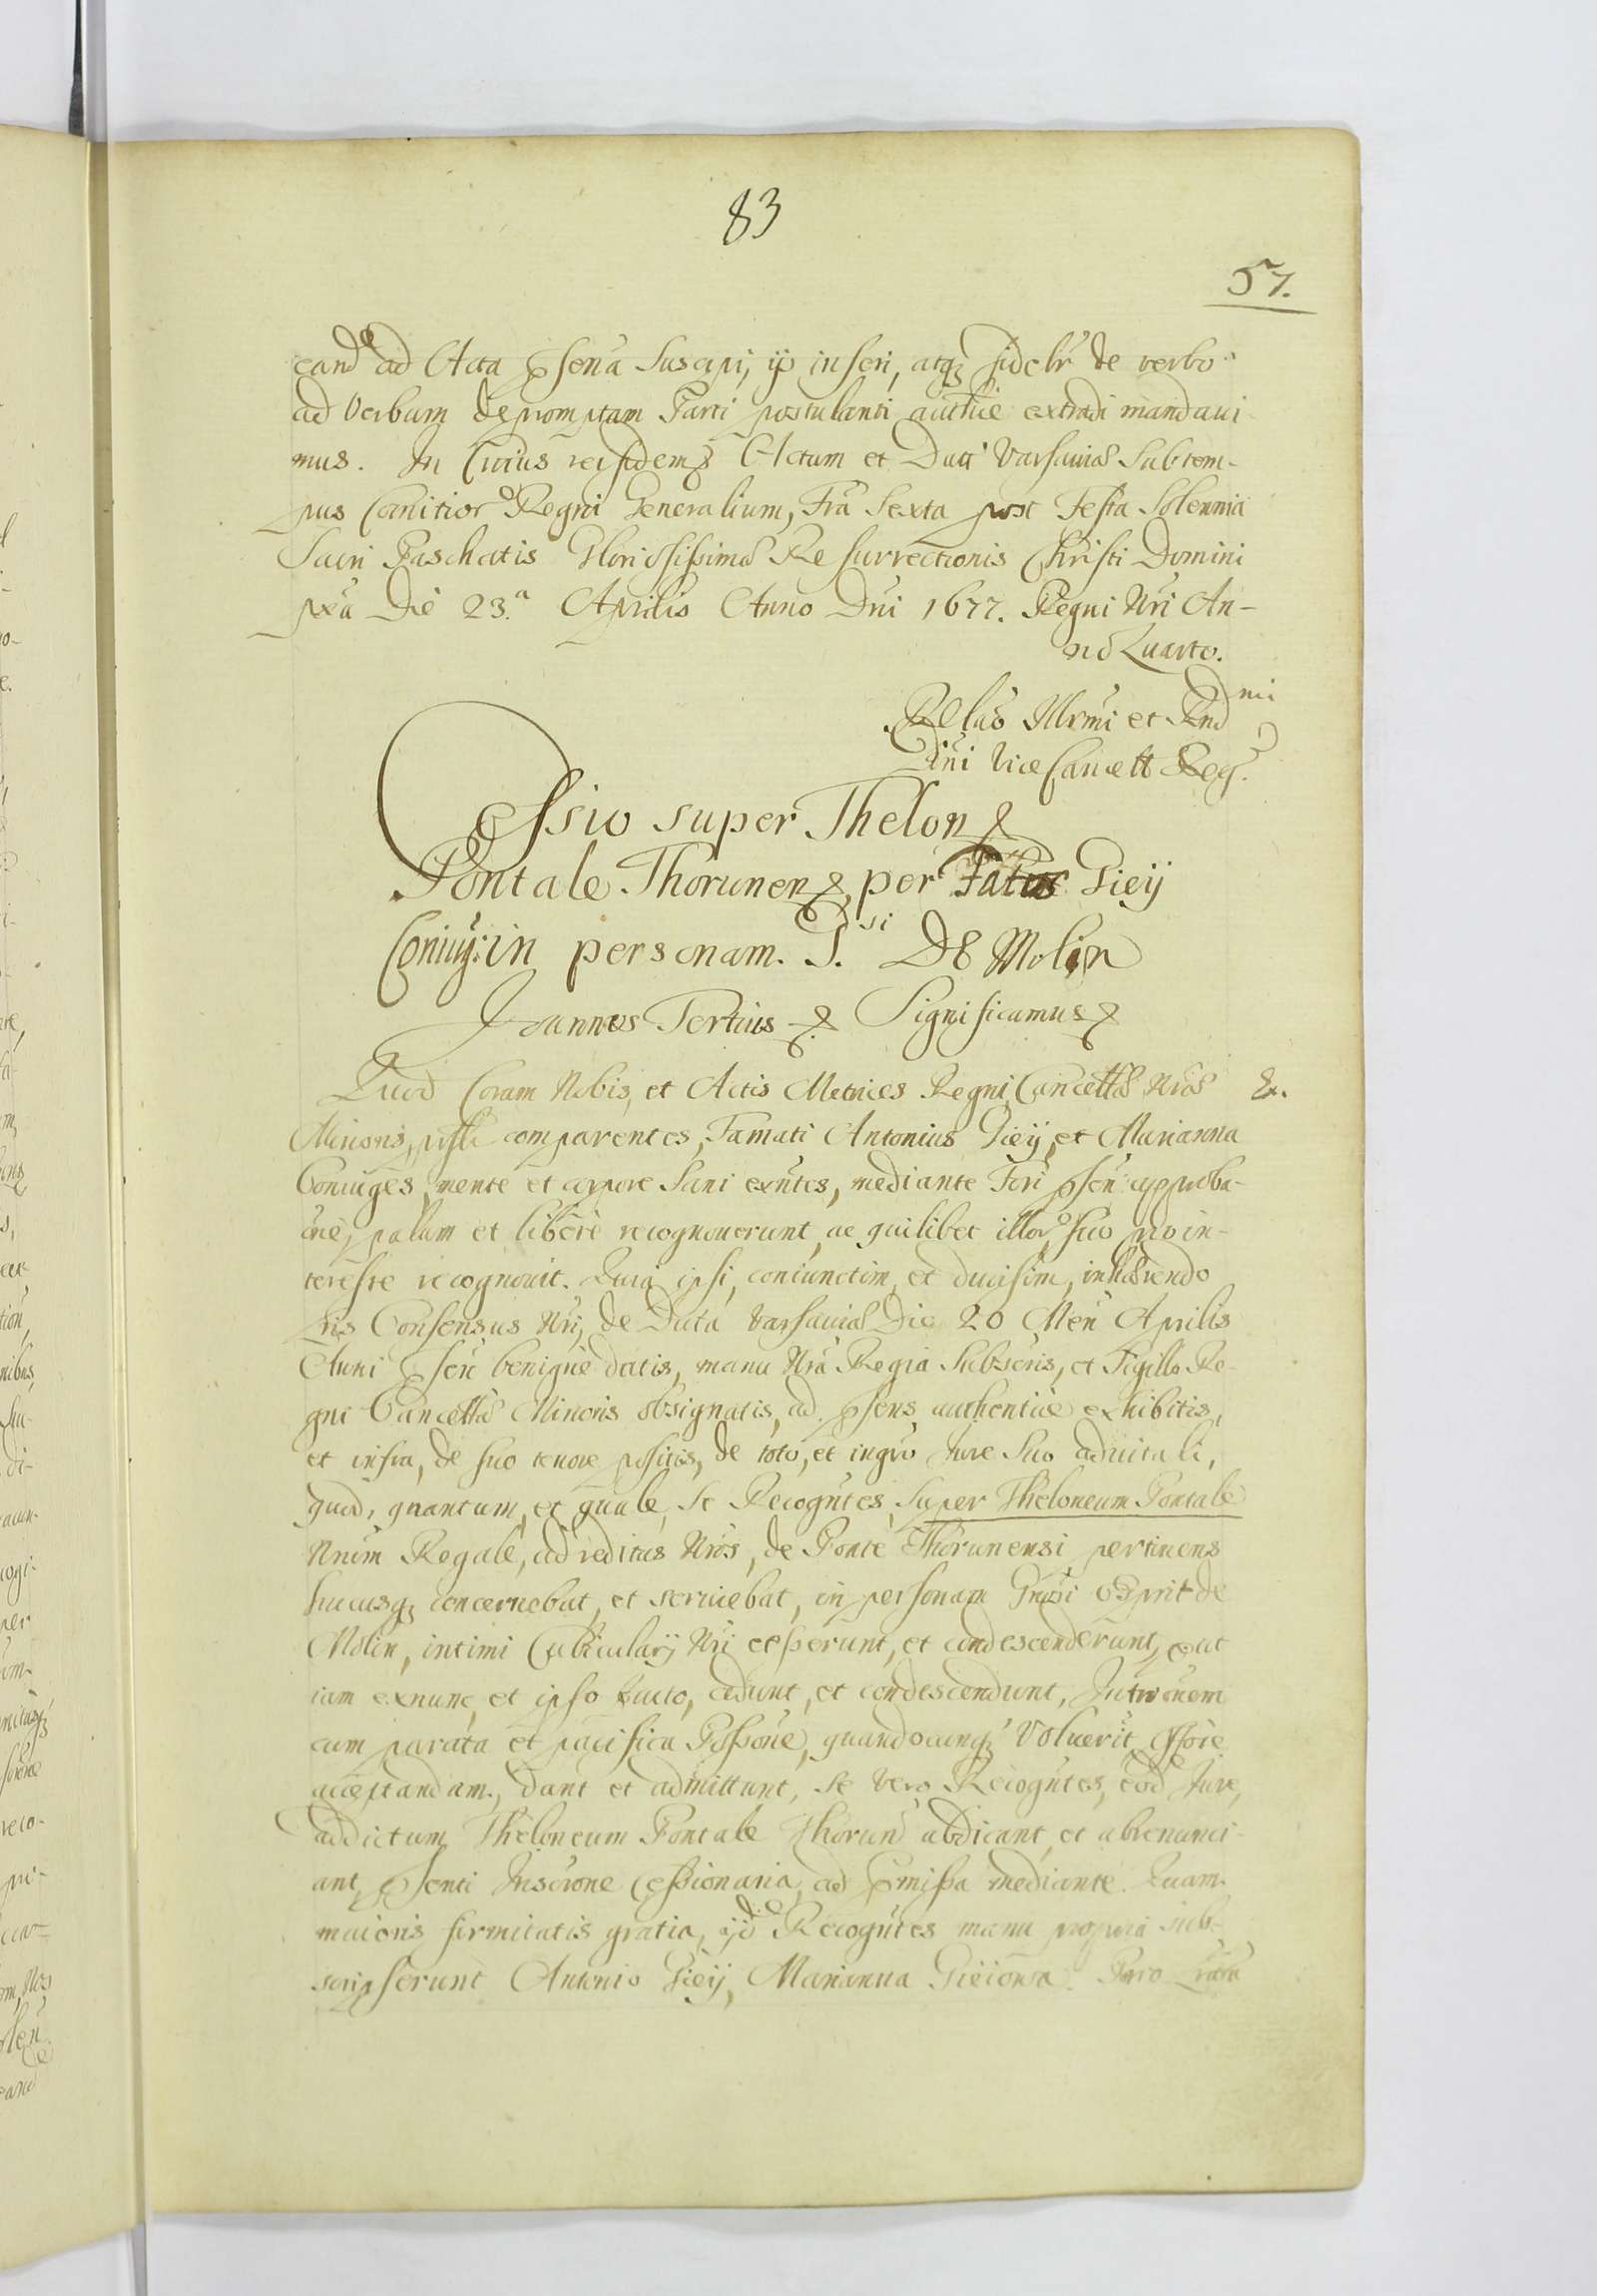 83
57.
eand ad Acta psena Suscipi, ijs inseri, atq fidelr de verbo
ad Verbum depromptam Parti postulanti autthce extradi mandaui
mus. In Cuius rei fidem Actum et Datt Varsauiæ Sub tem-
pus Comitior Regni Generalium, Fria Sexta post Festa Solennia
Sacri Paschatis Gloriosissimæ Resurrectionis Christi Domini
pxa Die 23.a Aprilis Anno Dni 1677. Regni Nri An-
no Quarto.
Relãõ Illrmi et Rndmi
Dni Vice Cancell Reg.
Cessio super Thelon
Pontale Thorunen per Giey
Coniug: in personam G.si De Molin
Joannes Tertius Significamus
Quod Coram Nobis, et Actis Metrices Regni Cancellæ Nræ Ex.
Minoris, psllr comparentes, Famati Antonius Giey, et Marianna
Coniuges, mente et corpore Sani exñtes, mediante Fori psen approba-
õne, palam et libere recognouerunt, ac quilibet illor suo pro in-
teresse recognouit. Quia ipsi, coniunctim, et diuisim, inhærendo
Lris Consensus Nri, de Data Varsauiæ Die 20 Men Aprilis
Anni psen benigne datis, manu Nra Regia Subscris, et Sigillo Re-
gni Cancellæ Minoris obsignatis, ad psens authentice exhibitis,
et infra, de suo tenore positis, de toto, et ingro Jure Suo aduitali,
quod, quantum, et quale, Se Recogñtes, Super Theloneum Pontale
Nrum Regale, ad reditus Nros, de Ponte Thorunensi pertinens
hucusq concernebat, et seruiebat, in personam Gnrsi Esprit de
Molin, intimi Cubicularij Nri cesserunt, et condescenderunt, put
iam exnunc, et ipso facto, cedunt, et condescendunt, Intromõnem
cum parata et pacifica Possõne, quandocunq Voluerit
acceptandam, dant et admittunt, Se Vero Recogñtes, eod Jure,
ad dictum Theloneum Pontale Thorun abdicant, et abrenunci-
ant, psenti Inscrõne Cessionaria, ad pmissa mediante. Quam
maioris firmitatis gratia, ijd Recogñtes manu propria sub-
scripserunt Antonio Giey, Marianna Gieiowa.